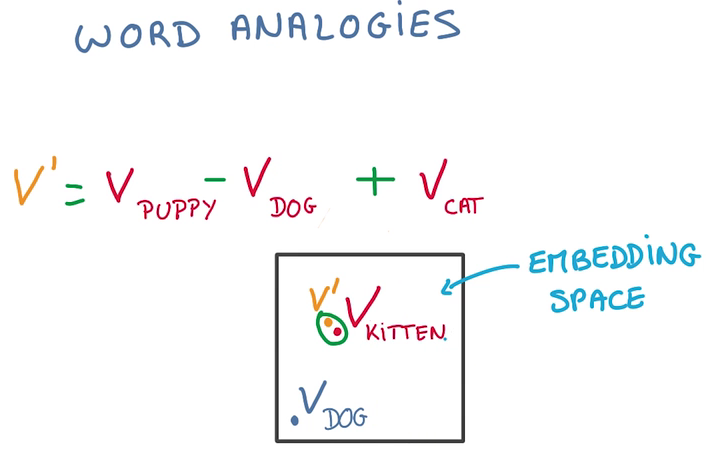 WORD ANALOGIES
V' = V PUPPY - V DOG + V CAT
EMBEDDING
SPACE
V' V KITTEN.
V DOG